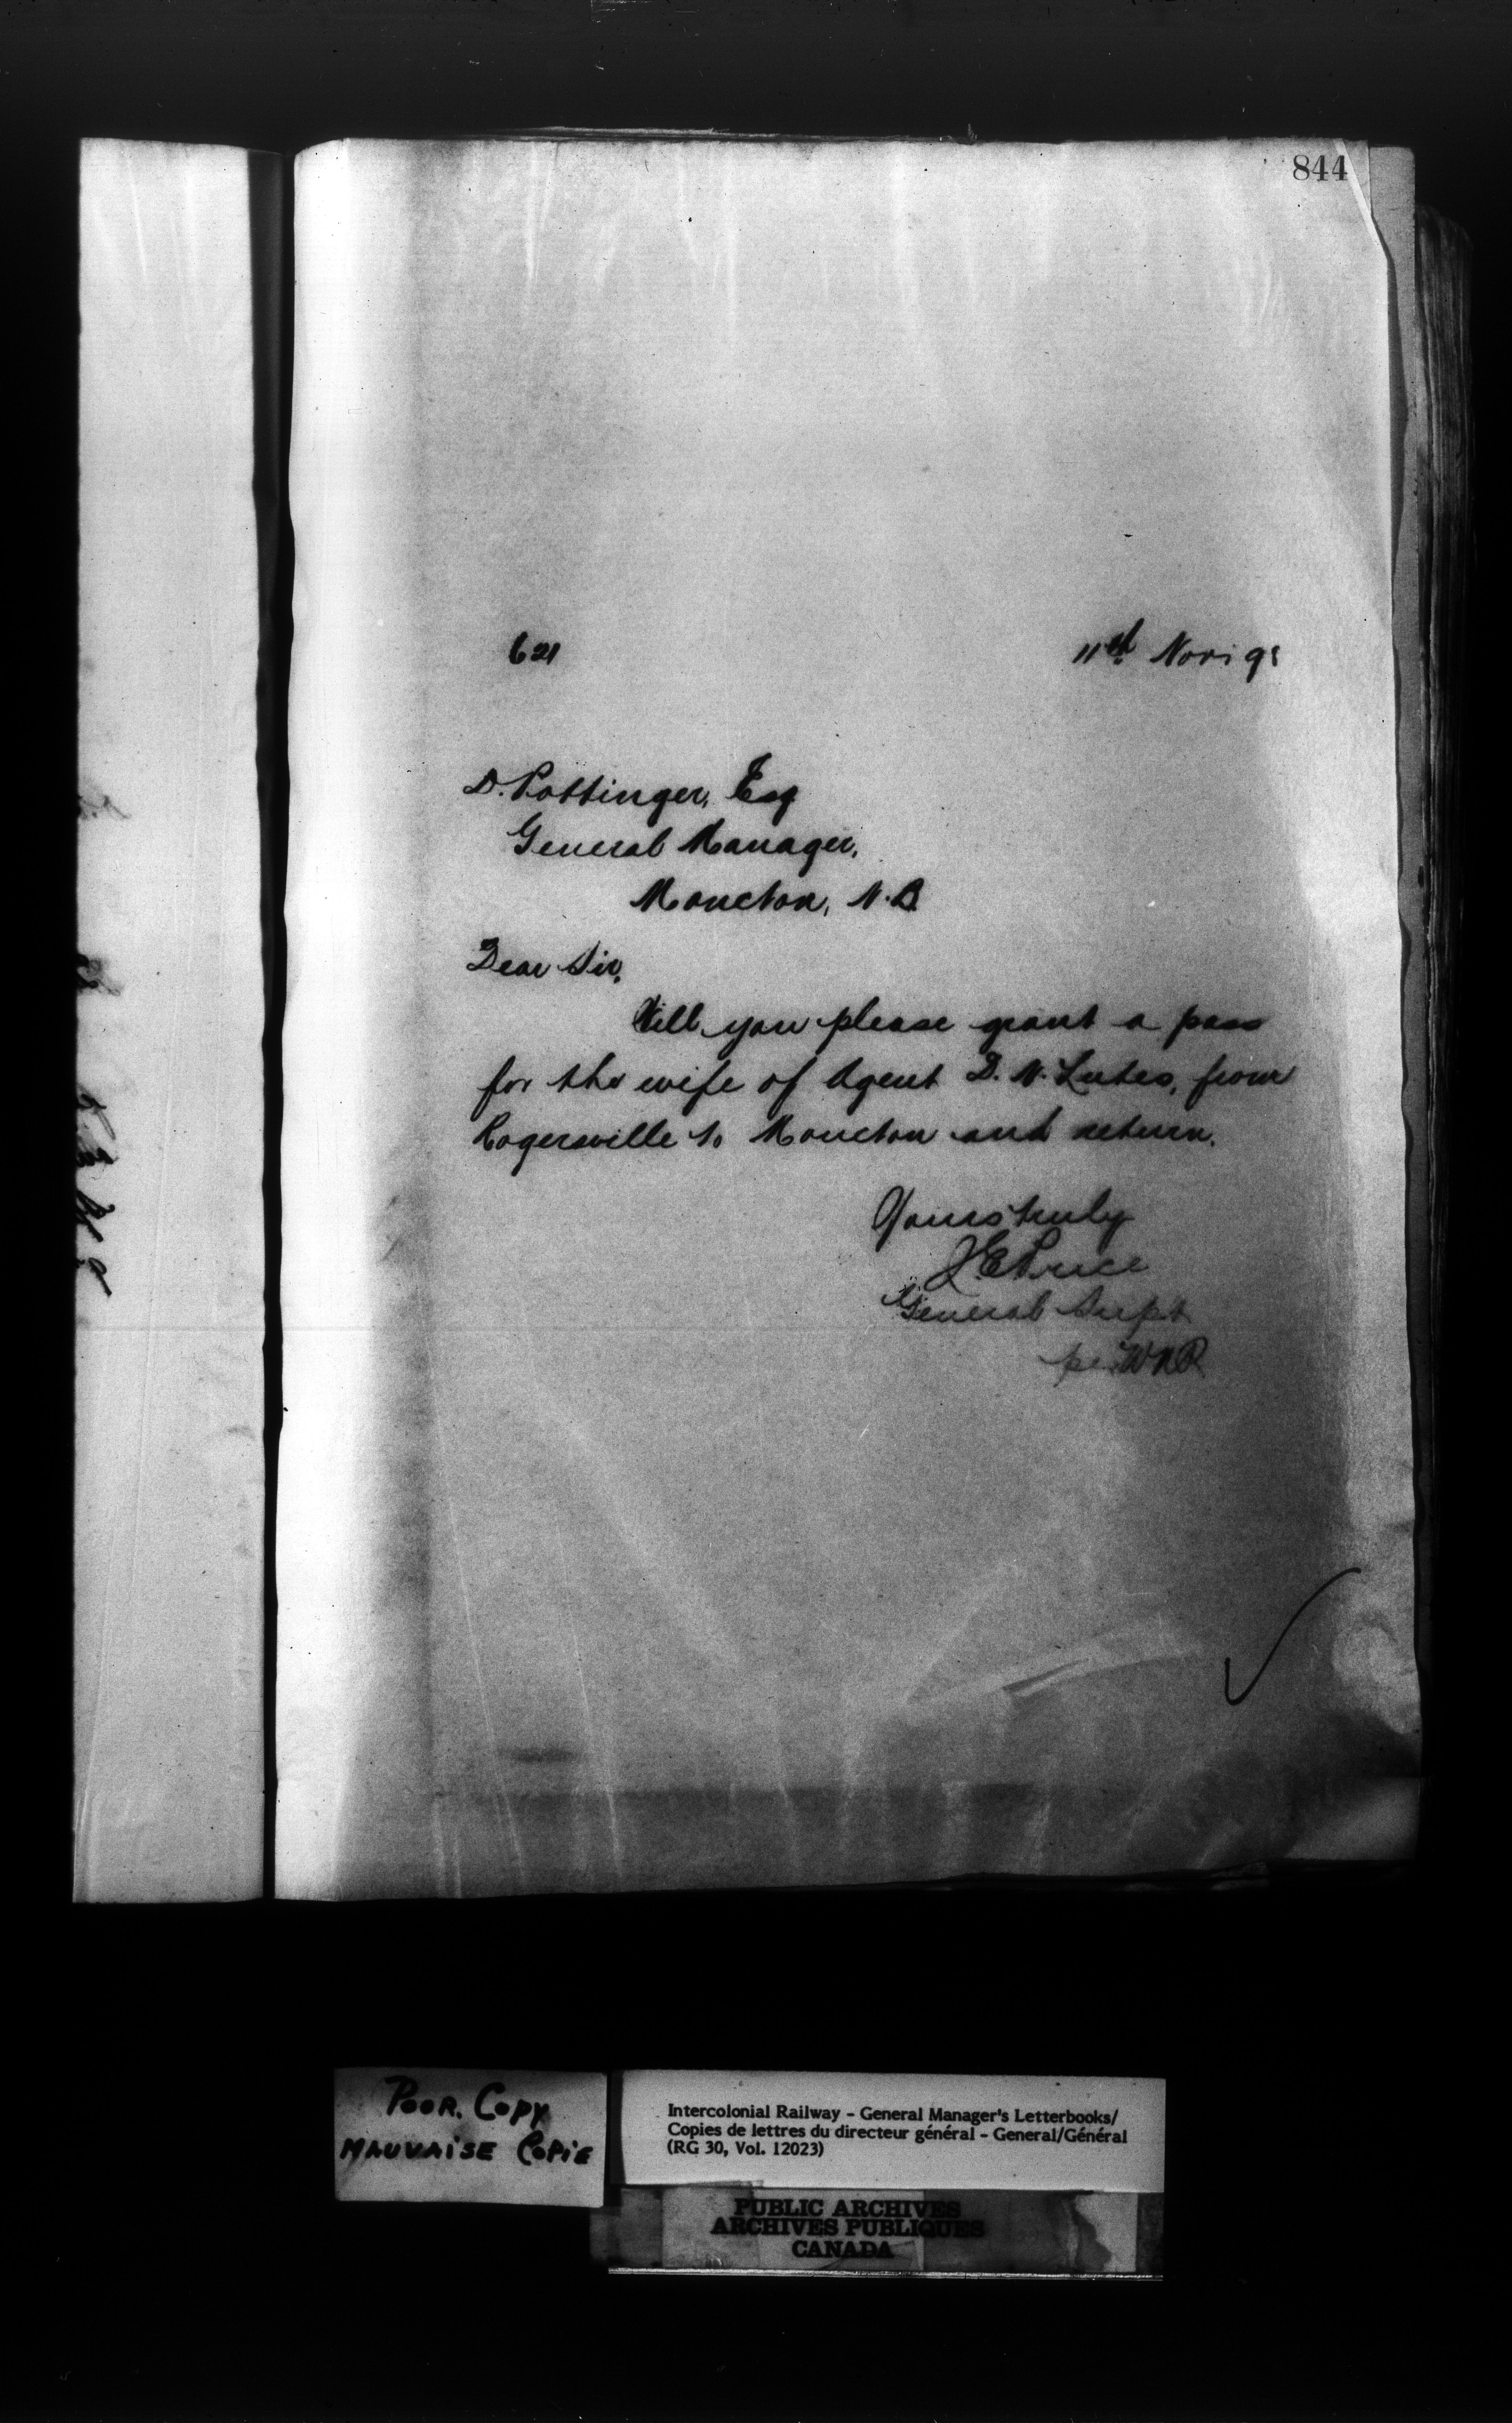 844
621
11th Nov. 98
D. Pottinger, Esq
General Manager,
Moncton, N.B.
Dear Sir,
Will you please grant a pass
for the wife of Agent D. N. Lutes, from
Rogersville to Moncton and return.
Yours truly
J.E. Price
General Supt
per WNR
Poor. Copy
Mauvaise Copie
Intercolonial Railway - General Manager's Letterbooks/
Copies de lettres du directeur général - General/Général
(RG 30, Vol. 12023)
PUBLIC ARCHIVES
ARCHIVES PUBLIQUES
CANADA